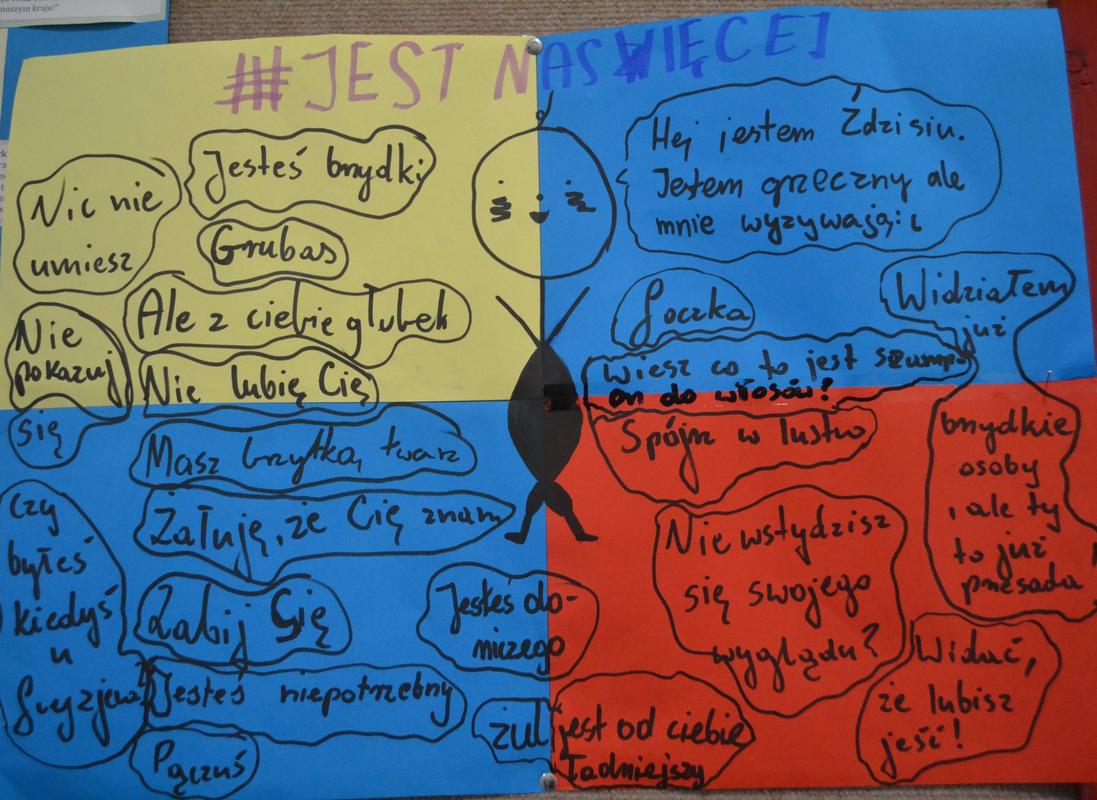 naszym kraju!"
#JEST NAS WIĘCEJ
Nic nie
umiesz
Jesteś brzydki
Grubas
Ale z ciebie głubek
Nie
pokazuj
się
Nie lubię Cię
Masz brzytką twarz
Żałuję, że Cię znam
czy
byłeś
kiedyś
u
Zabij Się
Jesteś niepotrzebny
Pączuś
Jesteś do-
niczego
żul jest od ciebie
ładniejszy
Hej jestem Ździsiu.
Jestem grzeczny ale
mnie wyzywają:(
Foczka
Wiesz co to jest szamp-
on do włosów?
Spójrz w lustro
Nie wstydzisz
się swojego
wyglądu?
Widziałem
już
brzydkie
osoby
, ale ty
to już
przesada
Widać,
że lubisz
jeść!